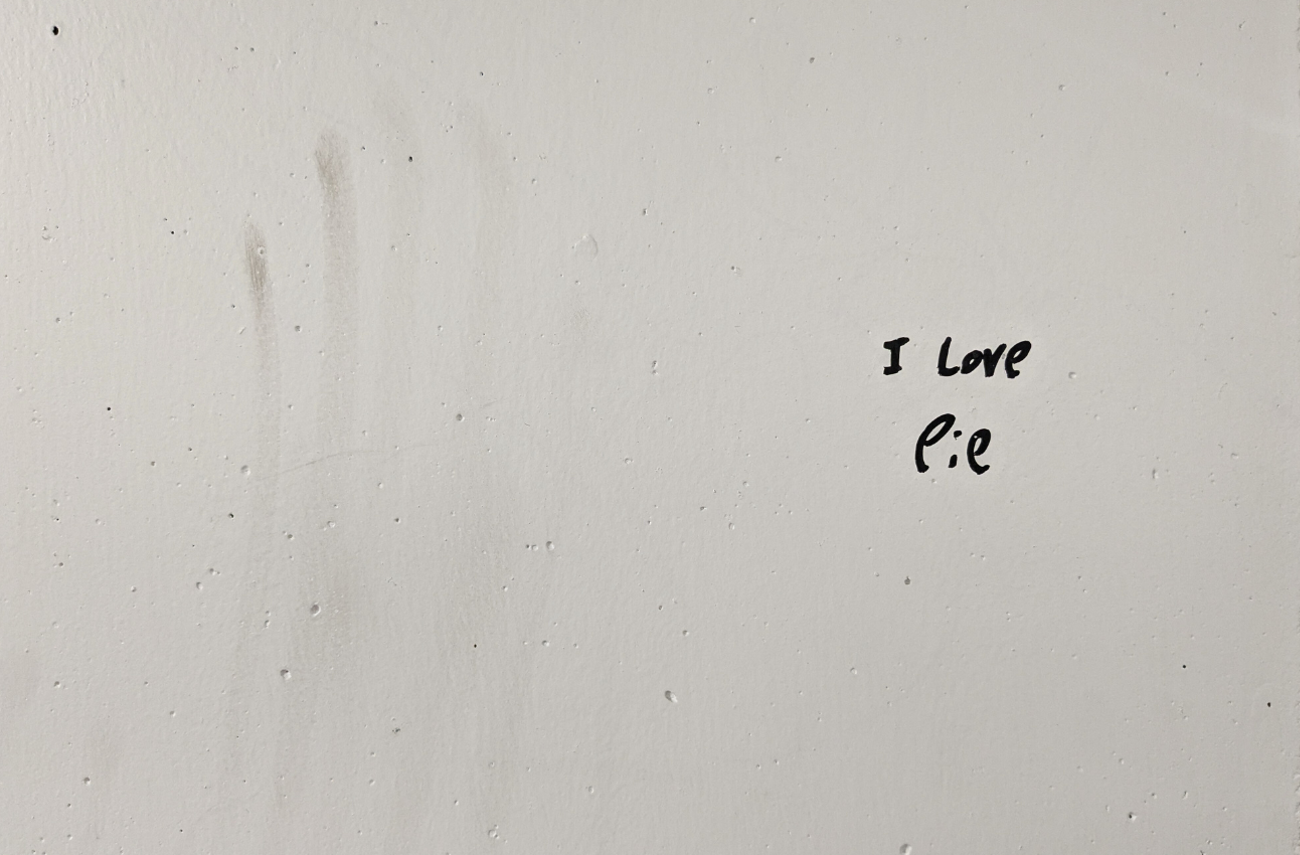 I Love
Pie